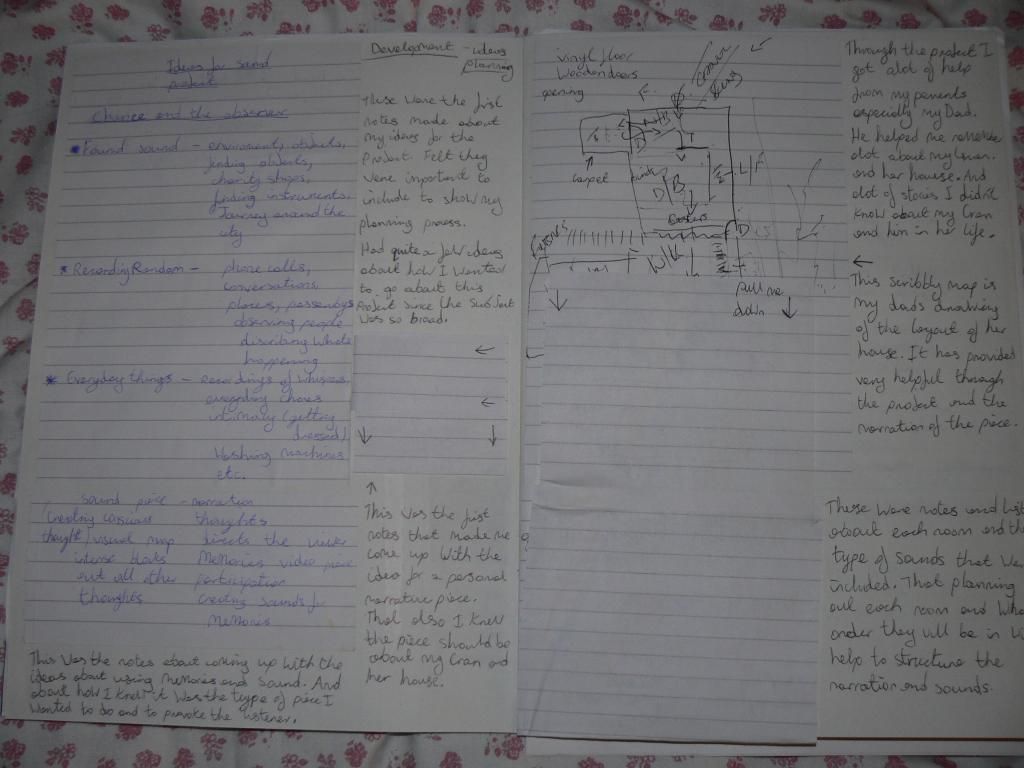 Ideas for sound
project
Chance and the observer
* Found sound - environment, objects,
finding objects,
charity shops,
finding instruments.
Journey around the
city
* Recording Random - phone calls,
conversations
places, passengers
observing people
describing whats
happening
* Everyday things - recordings of whispers,
everyday chores
intimacy (getting
dressed)
Washing machines
etc.
sound piece - narration
Creating thoughts
thought/visual map directs the viewer
intense blocks Memories video piece
out all other participation
thoughts creating sounds for
memories
This was the notes about coming up with the
ideas about using memories and sound. And
about how I knew it was the type of piece I
wanted to do and to provoke the listener.
Development - ideas
planning
These were the first
notes made about
my ideas for the
project. Felt they
were important to
include to show my
planning process.
Had quite a few ideas
about how I wanted
to go about this
project since the subject
was so broad.
This was the first
notes that made me
come up with the
idea for a personal
narrative piece.
That also I knew
the piece should be
about my Gran and
her house.
vinyl floor
Wooden doors
opening
carpet
D
B
D
pull me
down
Through the project I
got alot of help
from my parents
especially my Dad.
He helped me remember
alot about my Gran
and her house. And
alot of stories I didn't
know about my Gran
and him in her life.
This scribbly map is
my dads drawing
of the layout of her
house. It has provided
very helpful through
the project and the
narration of the piece.
These were notes and list
about each room and the
type of sounds that we
included. That planning
out each room and wha
order they will be in
help to structure the
narration and sounds.